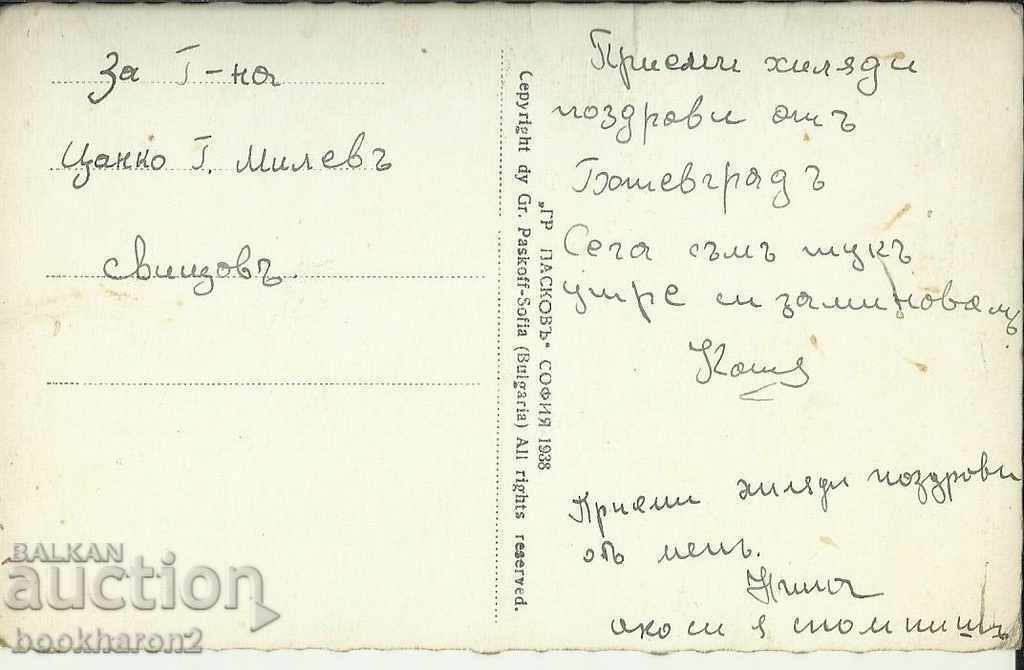 За Г-на
Цанко Г. Милевъ
Свищовъ.
Приеми хиляди
поздрови отъ
Ботевградъ
Сега съмъ тукъ
утре си заминовамъ
Катя
Приеми хиляди поздрови
отъ менъ.
ако си я спомнишъ
„ГР ПАСКОВЪ" СОФИЯ 1938
Copyright dy Gr. Paskoff-Sofia (Bulgaria) All rights reserved.
BALKAN
auction
bookharon2